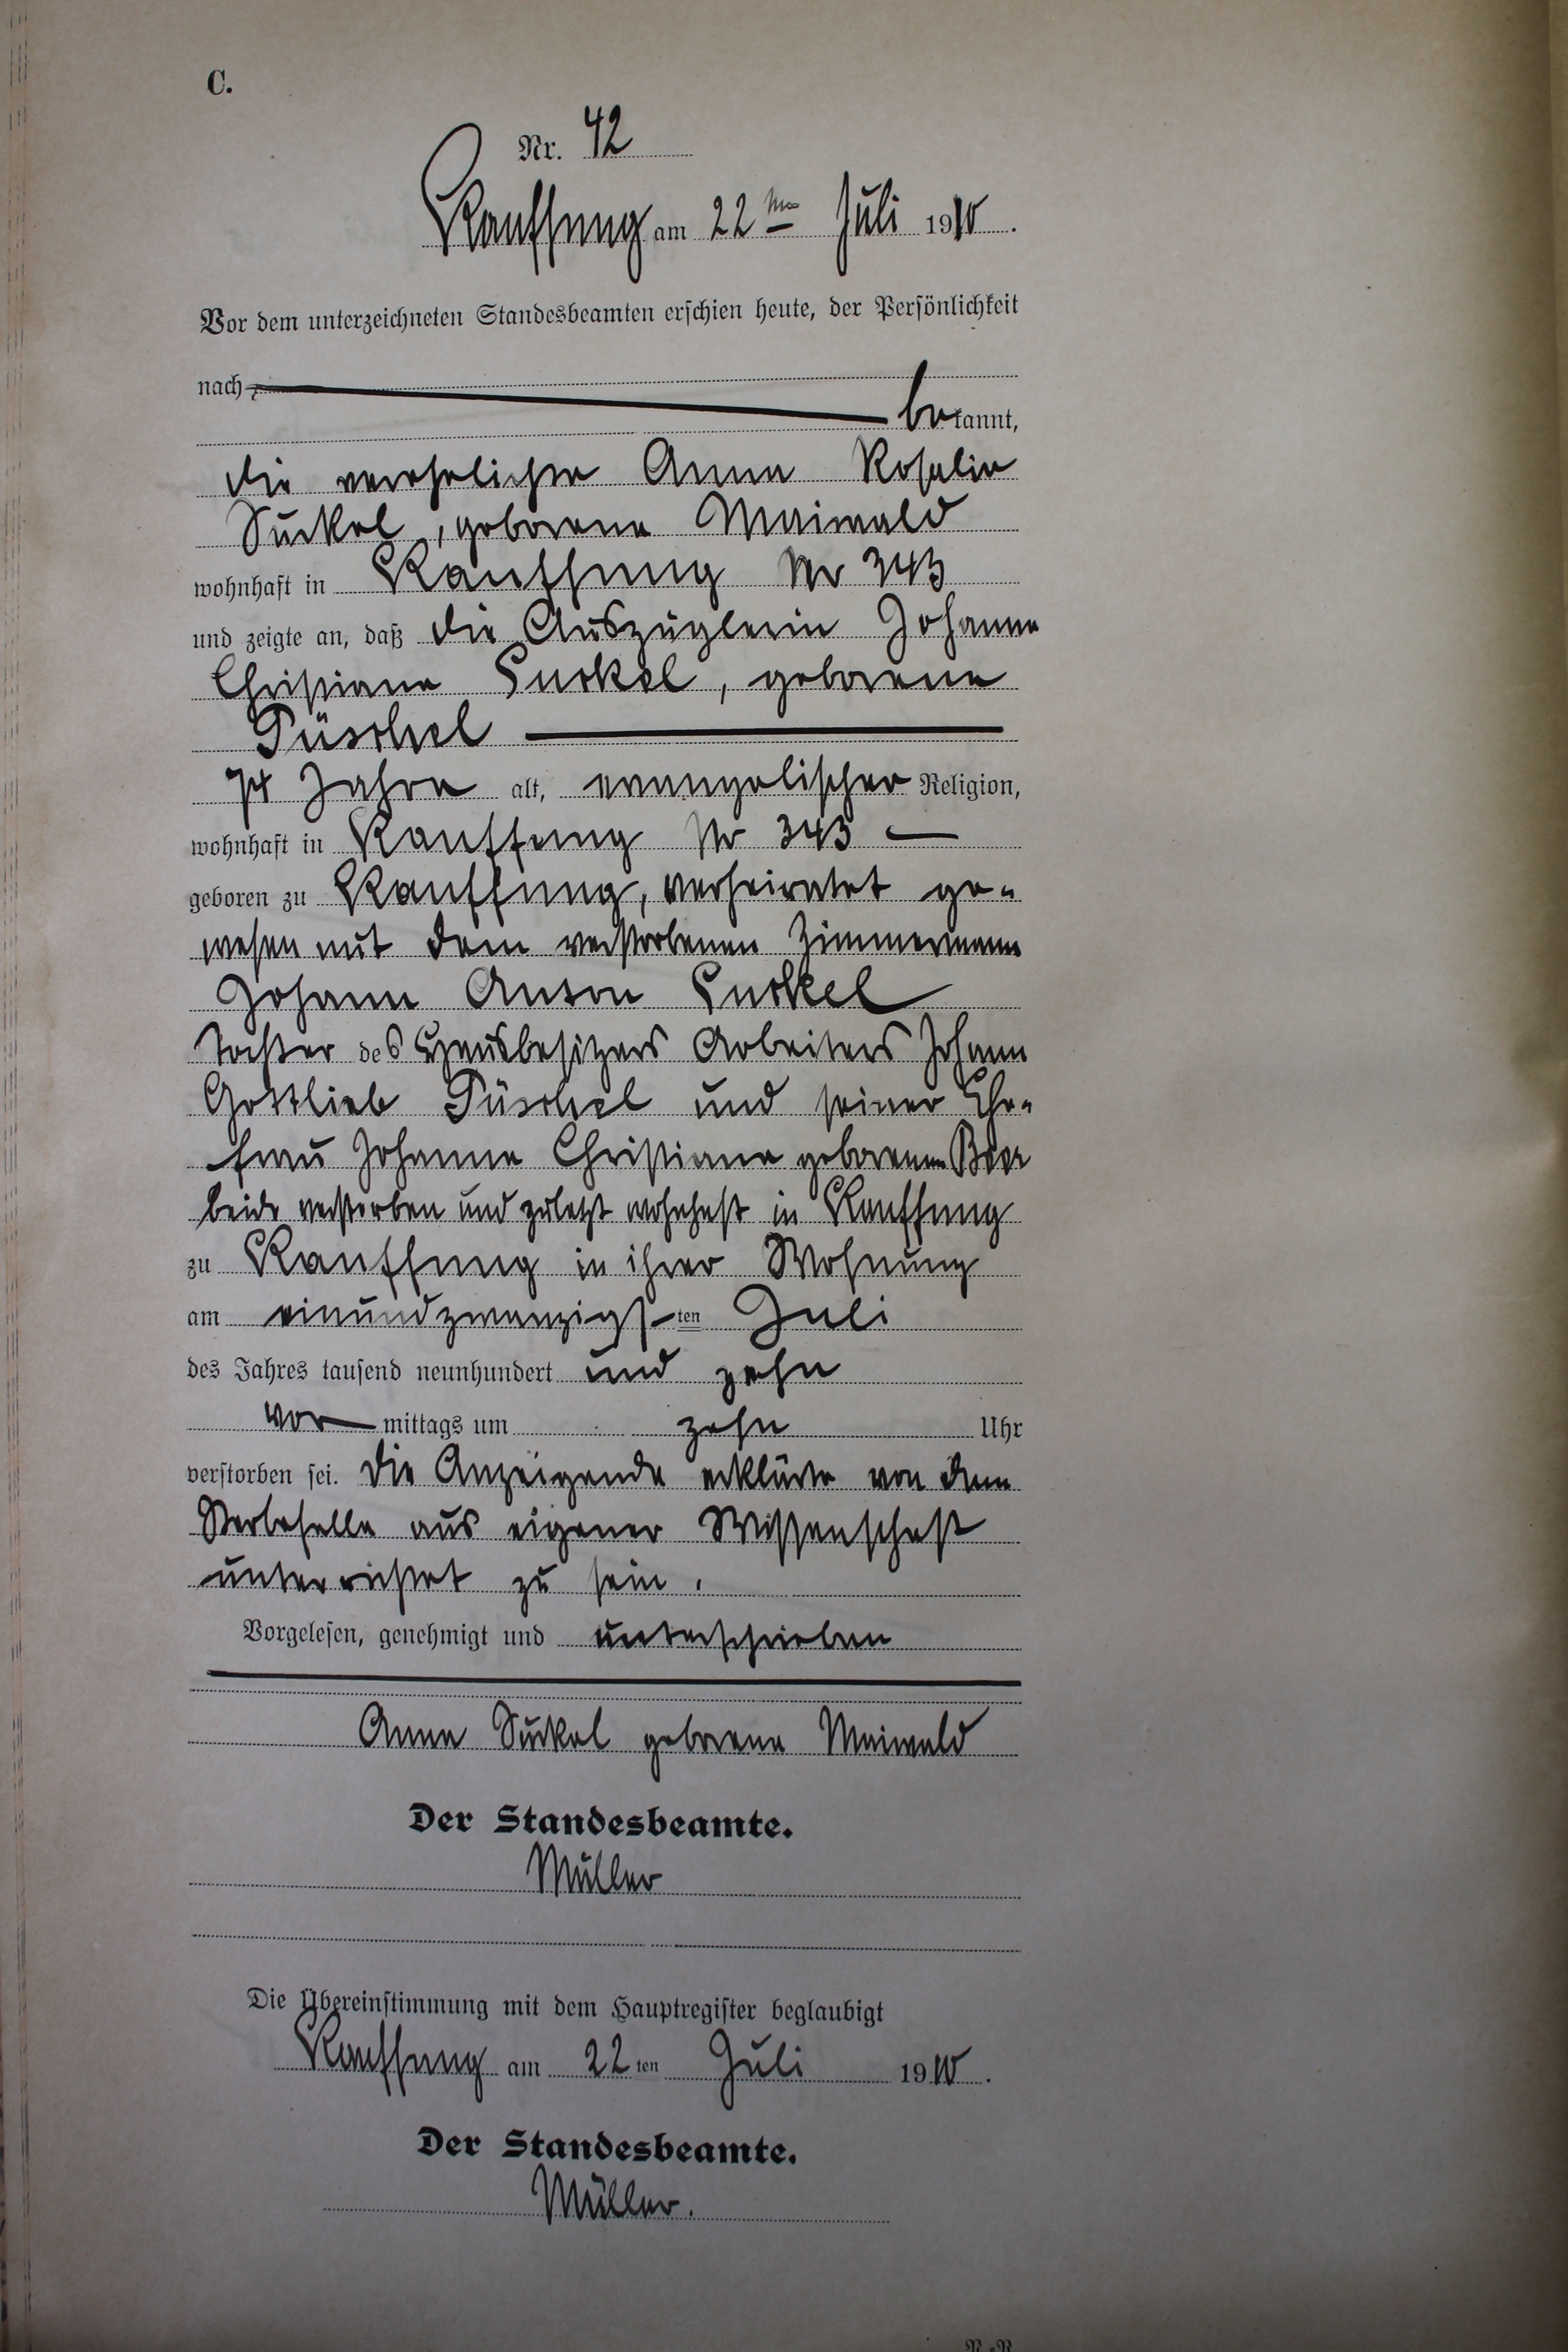 C.
Nr. 42
Kauffung am 22ten Juli 1910.
Vor dem unterzeichneten Standesbeamten erschien heute, der Persönlichkeit
nach
bekannt,
die verehelichte Anna Rosalie
Suckel, geborene Maiwald
wohnhaft in Kauffung Nr 343
und zeigte an, daß die Auszüglerin Johanne
Christiane Suckel, geborene
Püschel
74 Jahre alt, evangelischer Religion,
wohnhaft in Kauffung Nr 343
geboren zu Kauffung, verheiratet ge-
wesen mit dem verstorbenen Zimmermann
Johann Anton Suckel
Tochter des Hausbesitzers Arbeiters Johann
Gottlieb Püschel und seiner Ehe-
frau Johanne Christiane geborenen Beer
beide verstorben und zuletzt wohnhaft in Kauffung
zu Kauffung in ihrer Wohnung
am einundzwanzigsten Juli
des Jahres tausend neunhundert und zehn
vormittags um zehn Uhr
verstorben sei. Die Anzeigende erklärte von dem
Sterbefalle aus eigener Wissenschaft
unterrichtet zu sein.
Vorgelesen, genehmigt und unterschrieben
Anna Suckel geborene Maiwald
Der Standesbeamte.
Müller
Die Übereinstimmung mit dem Hauptregister beglaubigt
Kauffung am 22ten Juli 1910.
Der Standesbeamte.
Müller.